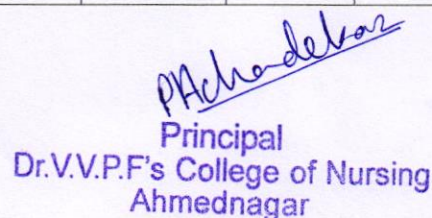 PAchandekar
Principal
Dr.V.V.P.F's College of Nursing
Ahmednagar